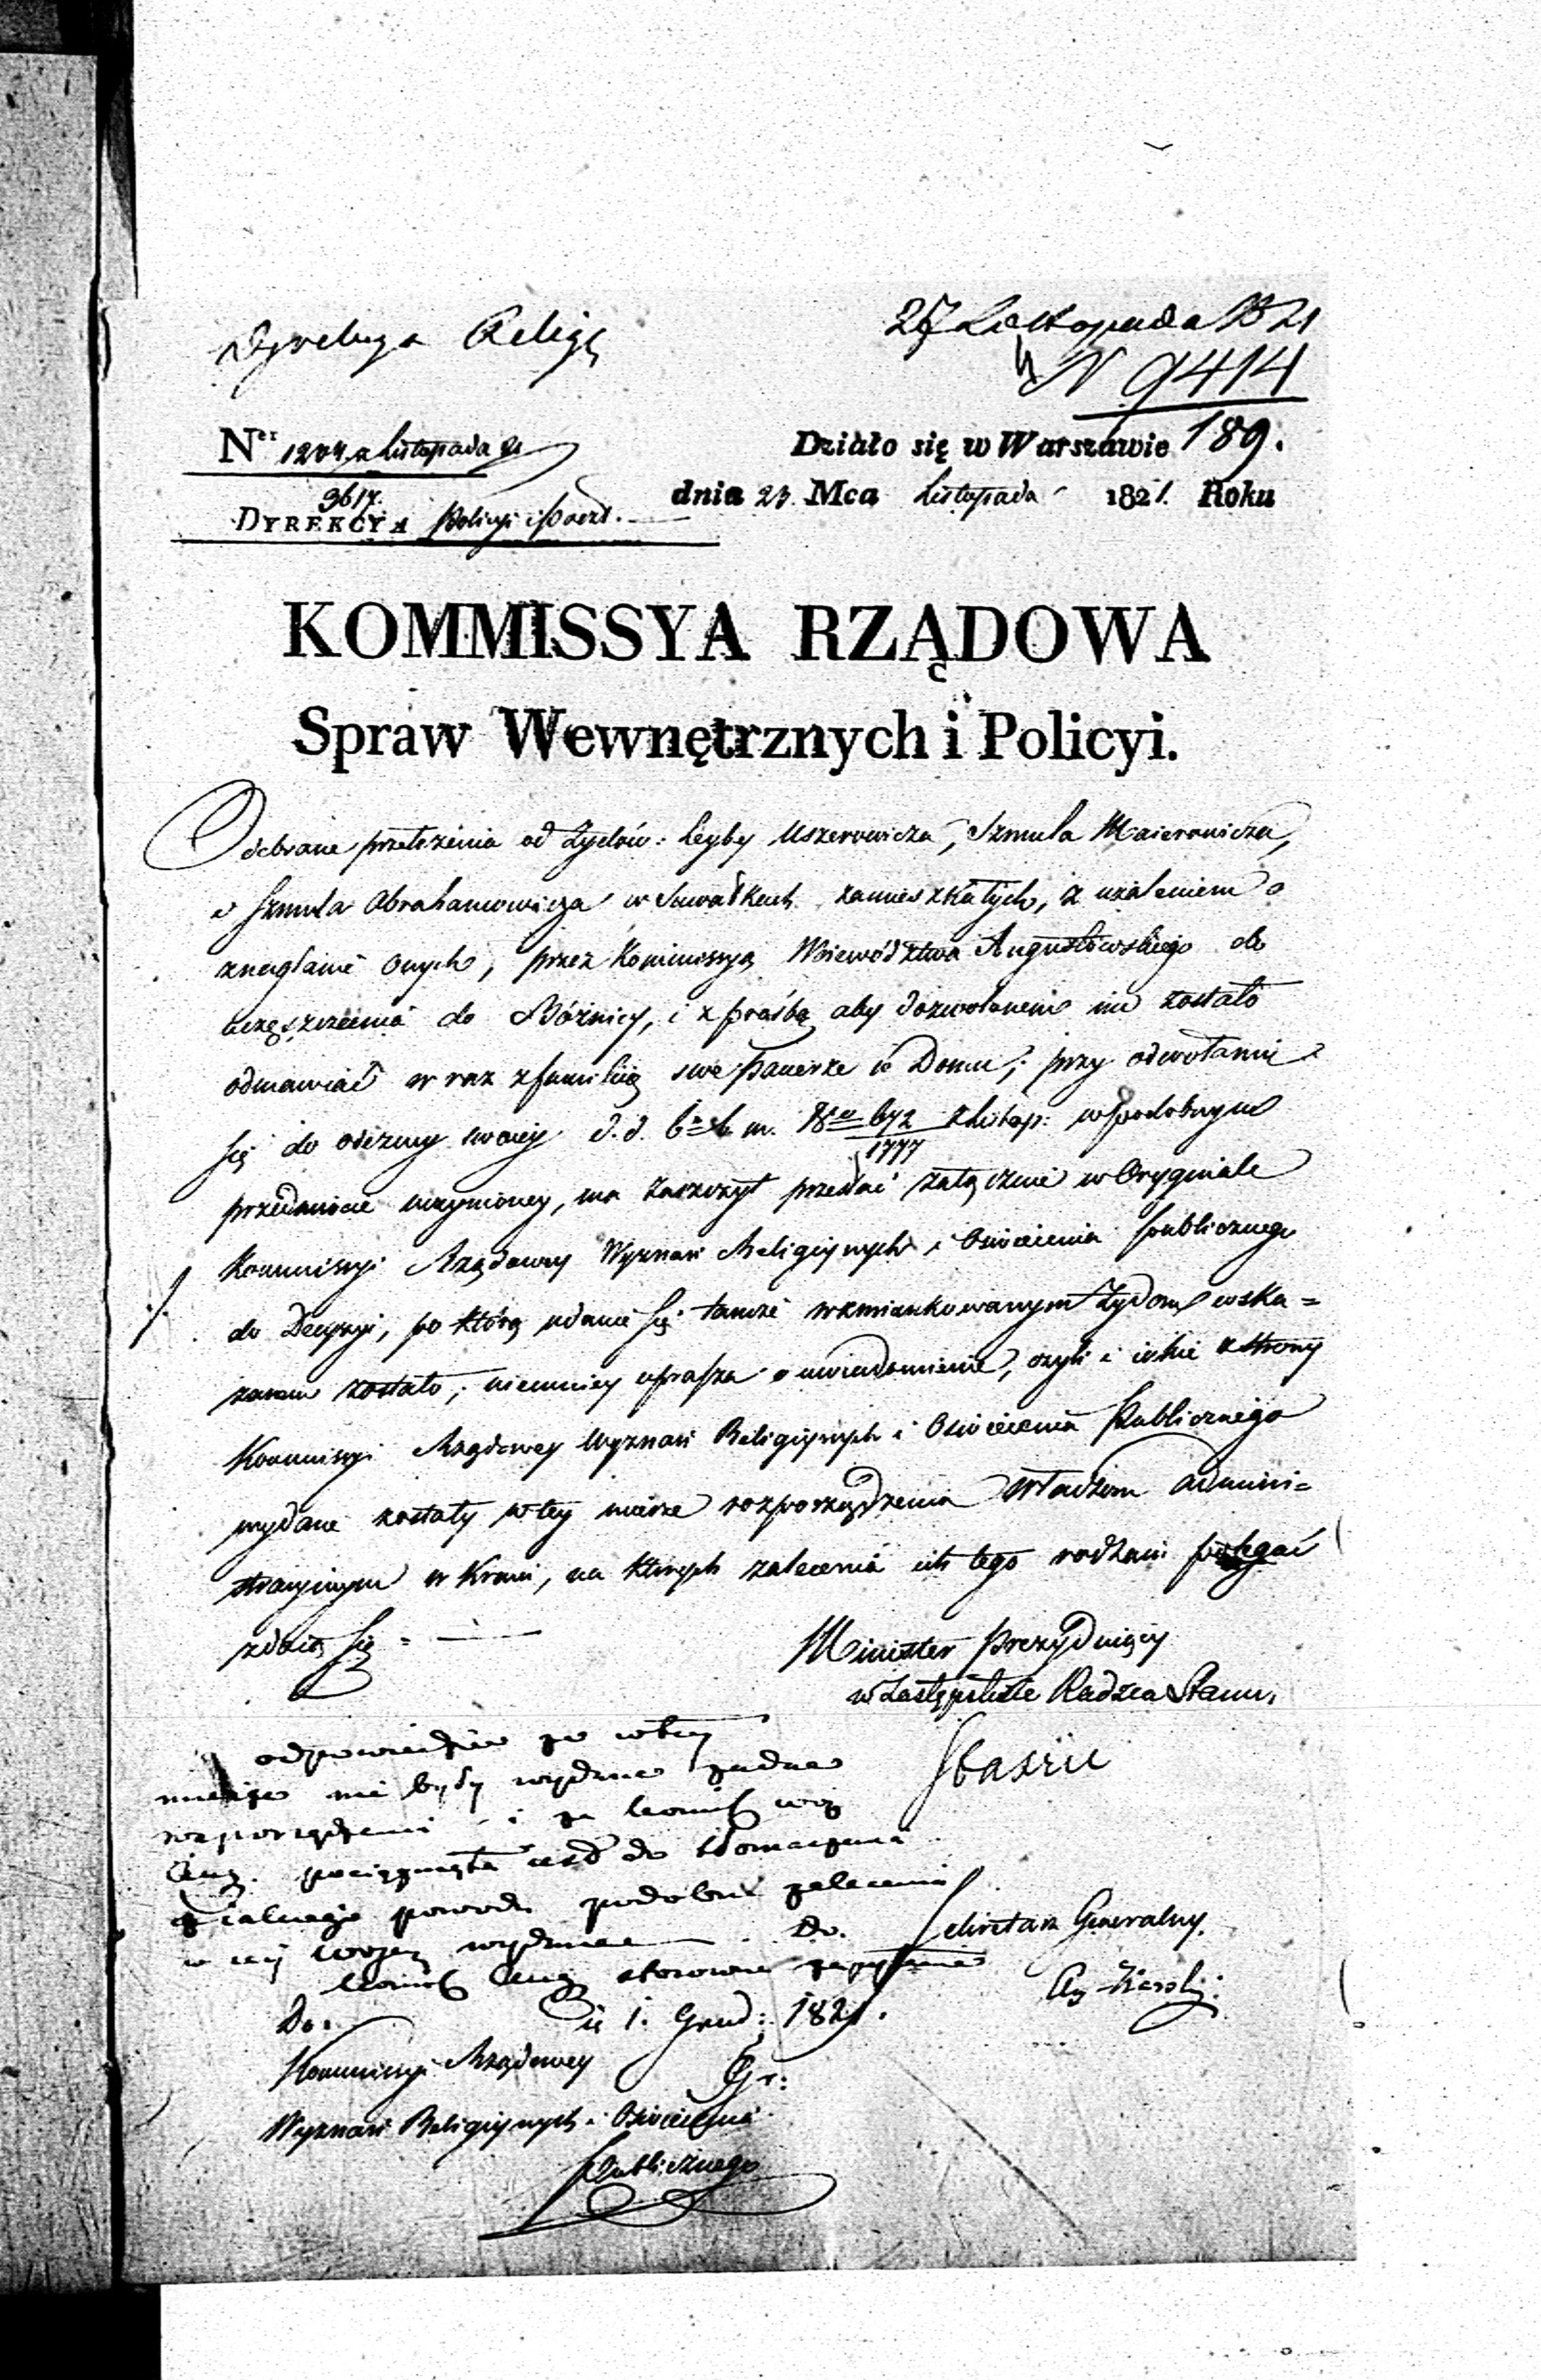 Dyrekcya Religi
27 Listopada 1821
N 9414
189.
Ner 1204 z Listopada 21
3617.
DYREKCYA Policyi i Poczt.
Działo się w Warszawie
dnia 23. Mca Listopada 1821. Roku
KOMMISSYA RZĄDOWA
Spraw Wewnętrznych i Policyi.
Odebrane przełożenia od Żydów: Leyby Uszerowicza, Szmula Maierowicza,
i Szmula Abrahamowicza w Suwałkach zamieszkałych, z użaleniem o
znaglanie onych, przez Kommissyą Województwa Augustowskiego do
uczęszczania do Bóźnicy, i z prośbą aby dozwolonem im zostało
odmawiać wraz z familią swe Pacierze w Domu; przy odwołaniu
się do odezwy swoiey d.d. 6 b. m. Nro 672 z Listop: w podobnym
1777
przedmiocie uczynioney, ma zaszczyt przesłać załącznie w Oryginale
Kommissyi Rządowey Wyznań Religiynych i Oświecenia Publicznego
do Decyzyi, po którą udanie się tamże wzmiankowanym Żydom wska=
zanem zostało; niemniey uprasza o uwiadomienie, czyli i iakie z strony
Kommissyi Rządowey Wyznań Religiynych i Oświecenia Publicznego
wydane zostały w tey mierze rozporządzenia Władzom admini=
stracyinym w Kraiu, na których zalecenia ich tego rodzaiu polegać
zdaią się = —
Minister Prezyduiący
w Zastępstwie Radzca Stanu,
Staszic
odpowiedzieć że w tey
mierze nie były wydane żadne
rozporządzenia i że Kommiss woj
Aug. pociągnięta iest do tłomaczenia
z iakiego powodu podobne zalecenia
w iey wydane Do
Kommiss Aug stosowne zapytanie
d 1. Grud: 1821.
Sekretarz Generalny.
Do.
Kommissyi Rządowey
Wyznań Religiynych i Oświecenia
Publicznego